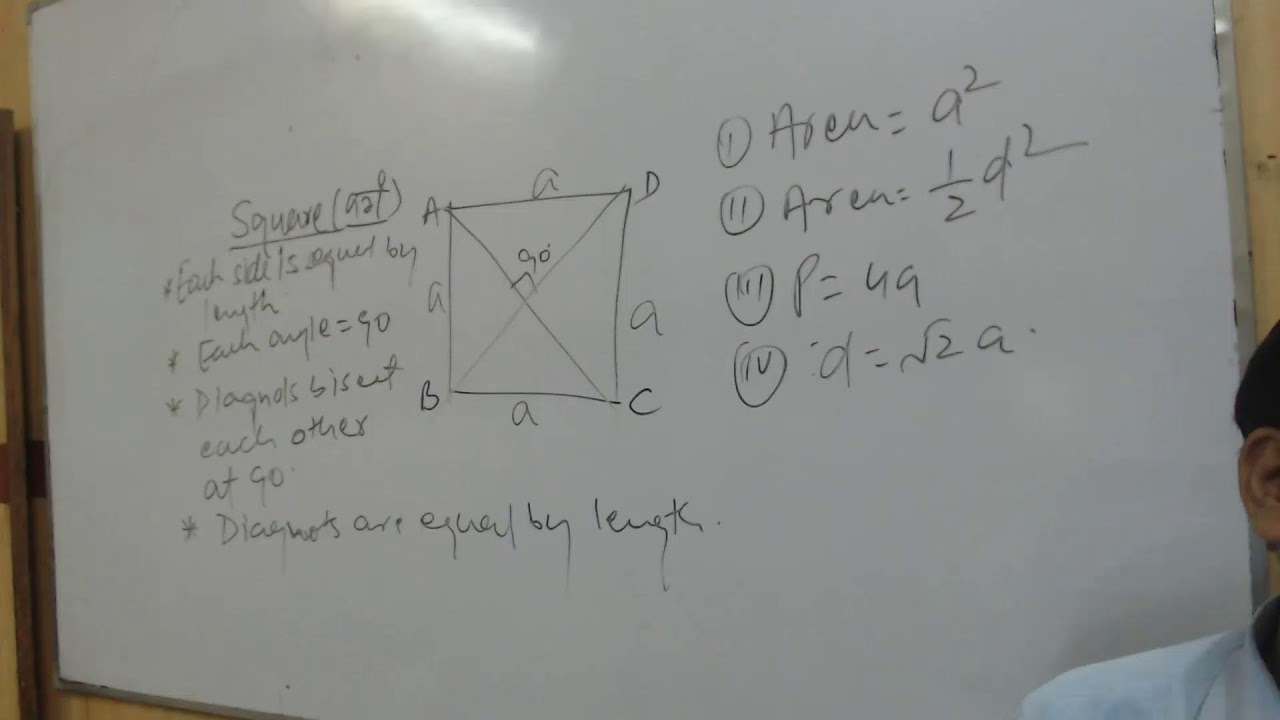 Square (वर्ग)
* Each side is equal by
length
* Each angle = 90
* Diagnols bisect
each other
at 90°
* Diagnols are equal by length.
A
a
D
90°
a
a
B
a
C
(I) Area = a²
(II) Area = 1/2 d²
(III) P = 4a
(IV) d = √2 a.